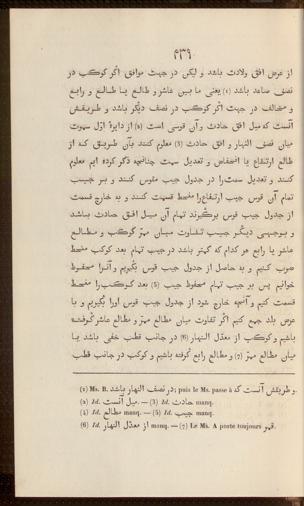 ۴۳۹
از عرض افق ولادت باشد و لیکن در جهت موافق اگر کوکب در
نصف صاعد باشد (1) یعنی ما بین عاشر و طالع یا طالع و رابع
و مخالف در جهت اگر کوکب در نصف دیگر باشد و طریقش
آنست که میل افق حادث و آن قوسی است (2) از دایرهٔ اول سموت
میان نصف النهار و افق حادث (3) معلوم کنند بآن طریق که از
طالع ارتفاع یا انخفاض و تعدیل سمت چنانچه ذکر کرده ایم معلوم
کنند و تعدیل سمت را در جدول جیب مقوس کنند و بر جیب
تمام آن قوس جیب ارتفاع را منحط قسمت کنند و به خارج قسمت
از جدول جیب قوس برگیرند تمام آن میل افق حادث باشد
و بوجهی دیگر جیب تفاوت میان ممرّ کوکب و مطالع
عاشر یا رابع هر کدام که کمتر باشد در جیب تمام بعد کوکب منحط
ضرب کنیم و به حاصل از جدول جیب قوس بگیریم و آنرا محفوظ
خوانیم پس بر جیب تمام محفوظ جیب (5) بعد کوکب را منحط
قسمت کنیم و آنچه خارج شود از جدول جیب قوس اورا بگیریم و با
عرض بلد جمع کنیم اگر تفاوت میان مطالع ممرّ و مطالع عاشر گرفته
باشیم و کوکب از معدّل النهار (6) در جانب قطب خفی باشد یا
میان مطالع ممرّ (7) و مطالع رابع گرفته باشیم و کوکب در جانب قطب
(1) Ms. B. در نصف النهار باشد; puis le Ms. passe à و طریقش آنست که.
(2) Id. میل آنست. — (3) Id. حادث manq.
(4) Id. مطالع manq. — (5) Id. جیب manq.
(6) Id. از معدّل النهار manq. — (7) Le Ms. A porte toujours قمر.